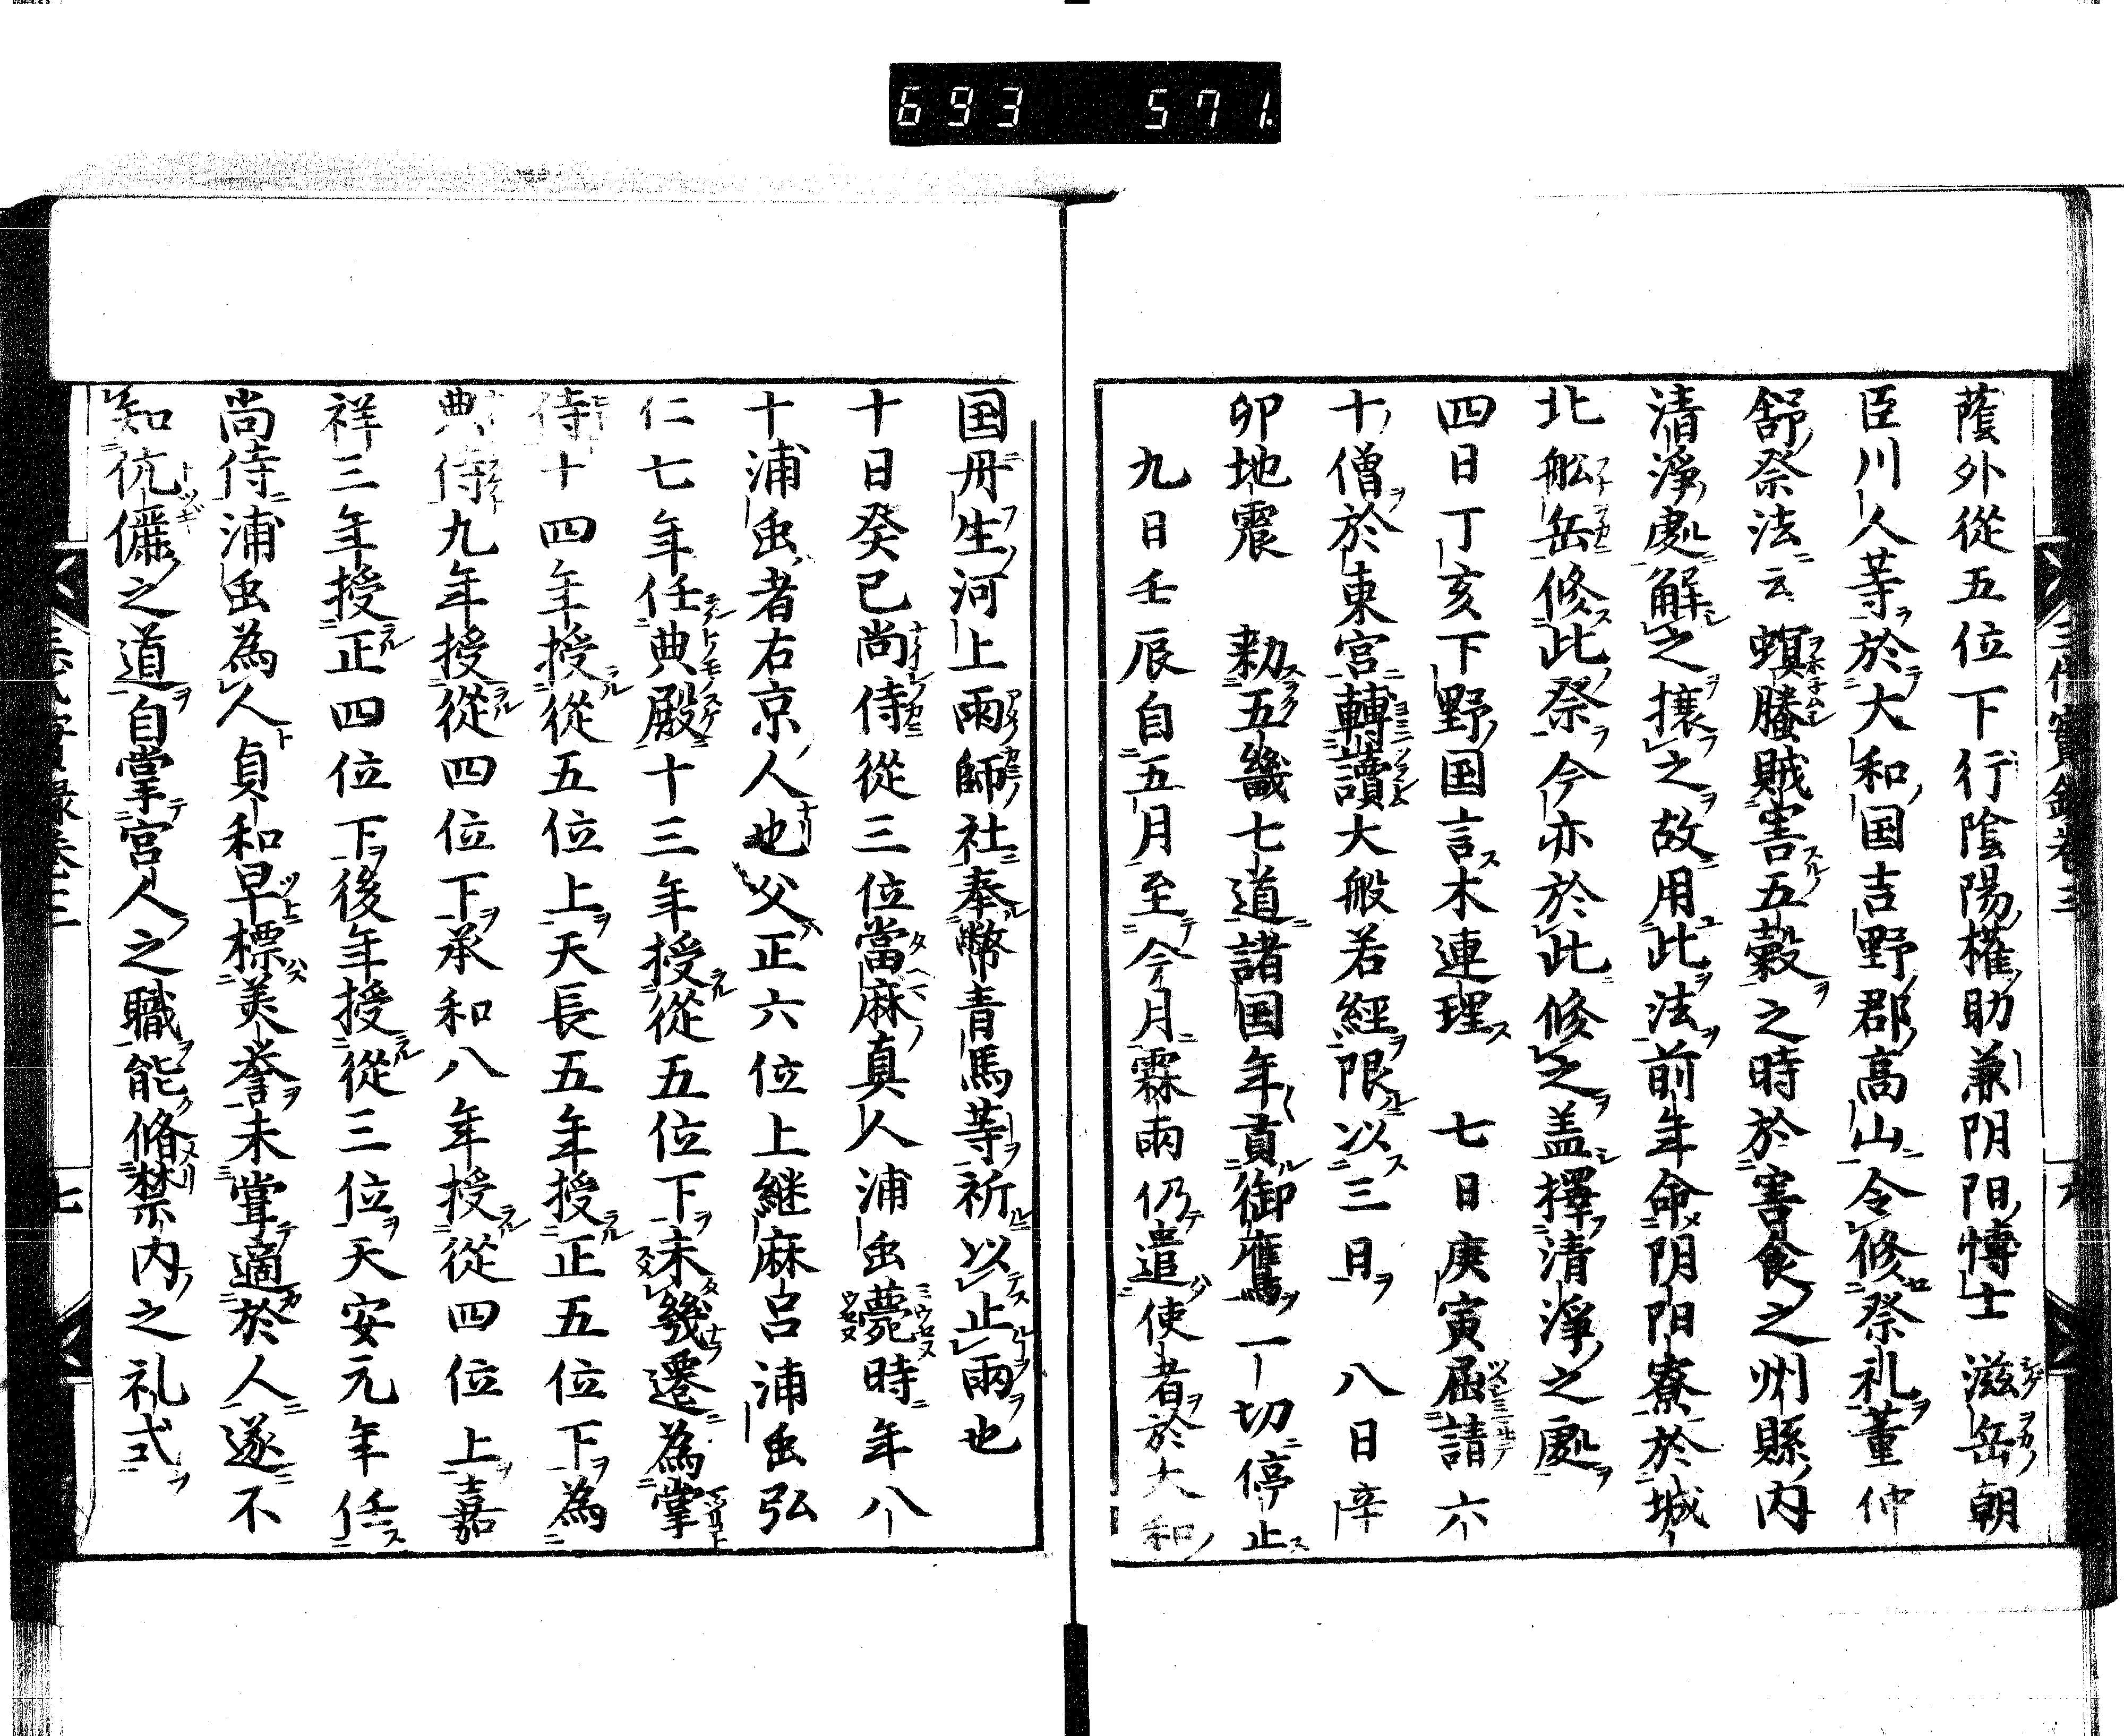 693 571
蔭外從五位下行陰陽權助兼阴阳博士滋岳朝
臣川人等於大和国吉野郡高山令修祭礼董仲
舒祭法云螟螣賊害五穀之時於害食之州縣内
清淨處解之攘之故用此法前年命阴阳寮於城
北舩岳修此祭今亦於此修之盖擇清淨之處
四日丁亥下野国言木連理　七日庚寅屈請六
十僧於東宮轉讀大般若經限以三日　八日辛
卯地震　勑五畿七道諸国年貢御鷹一切停止
九日壬辰自五月至今月霖雨仍遣使者於大和
国丹生河上雨師社奉幣青馬等祈以止雨也
十日癸巳尚侍從三位當麻真人浦虫薨時年八
十浦虫者右京人也父正六位上継麻呂浦虫弘
仁七年任典殿十三年授從五位下未幾遷為掌
侍十四年授從五位上天長五年授正五位下為
典侍九年授從四位下承和八年授從四位上嘉
祥三年授正四位下後年授從三位天安元年任
尚侍浦虫為人貞和早標美誉未嘗適於人遂不
知伉儷之道自掌宮人之職能脩禁内之礼式